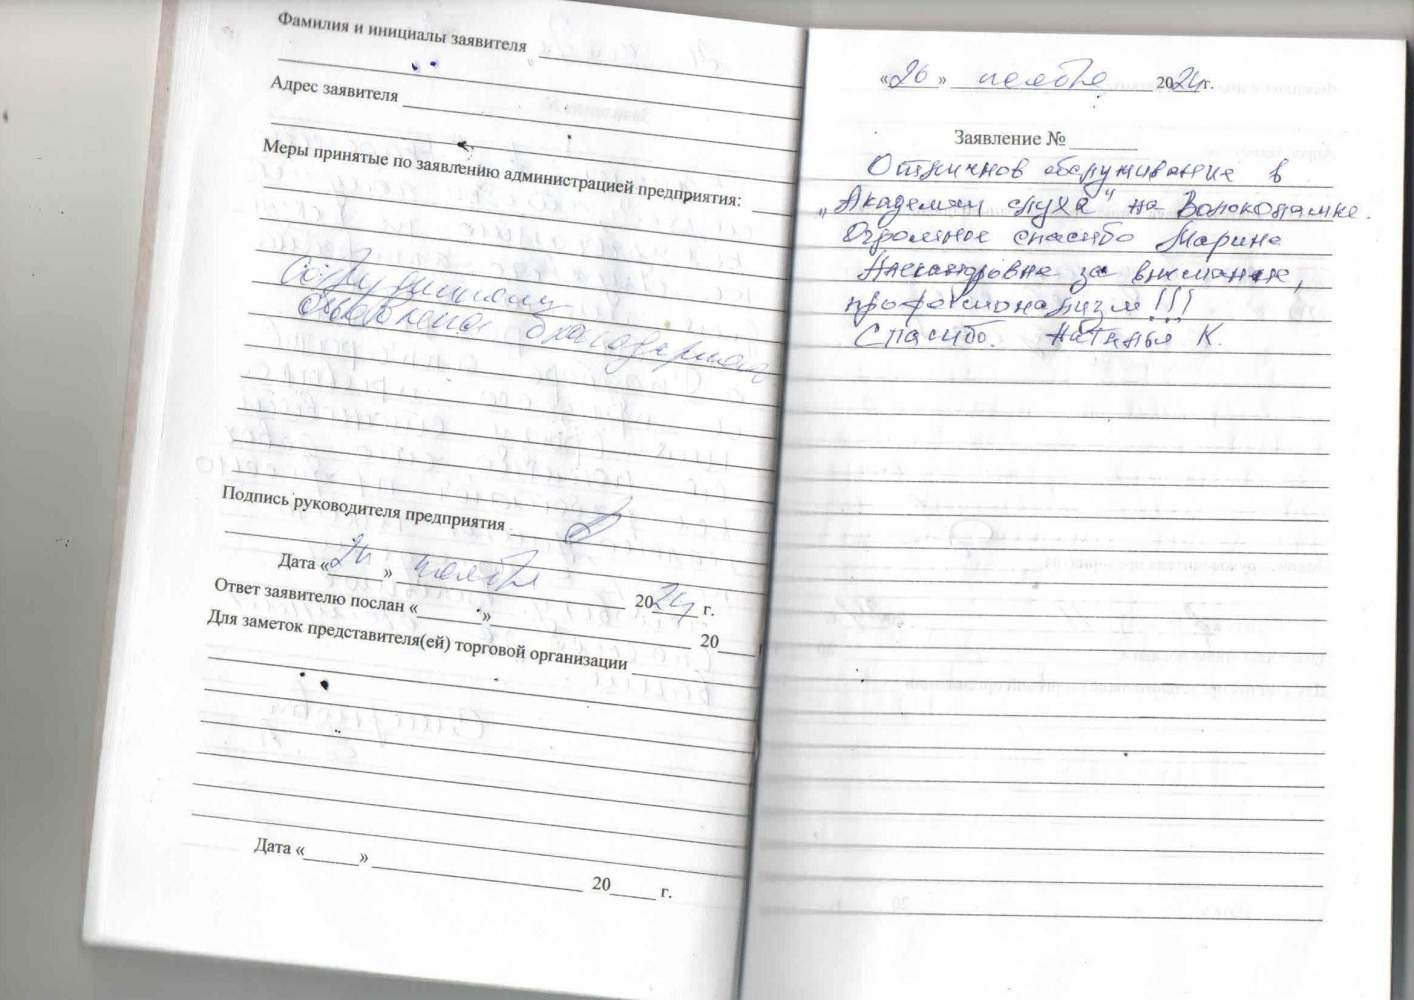 Фамилия и инициалы заявителя
Адрес заявителя
Меры принятые по заявлению администрацией предприятия:
Сотруднику
объявлена благодарность
Подпись руководителя предприятия
Дата «24» ноября 2024 г.
Ответ заявителю послан «» 20 г
Для заметок представителя(ей) торговой организации
Дата «» 20 г.
«26» ноября 2024г.
Заявление №
Отличное обслуживание в
„Академии слуха" на Волоколамке.
Огромное спасибо Марине
Александровне за внимание,
профессионализм!!!
Спасибо. Наталья К.